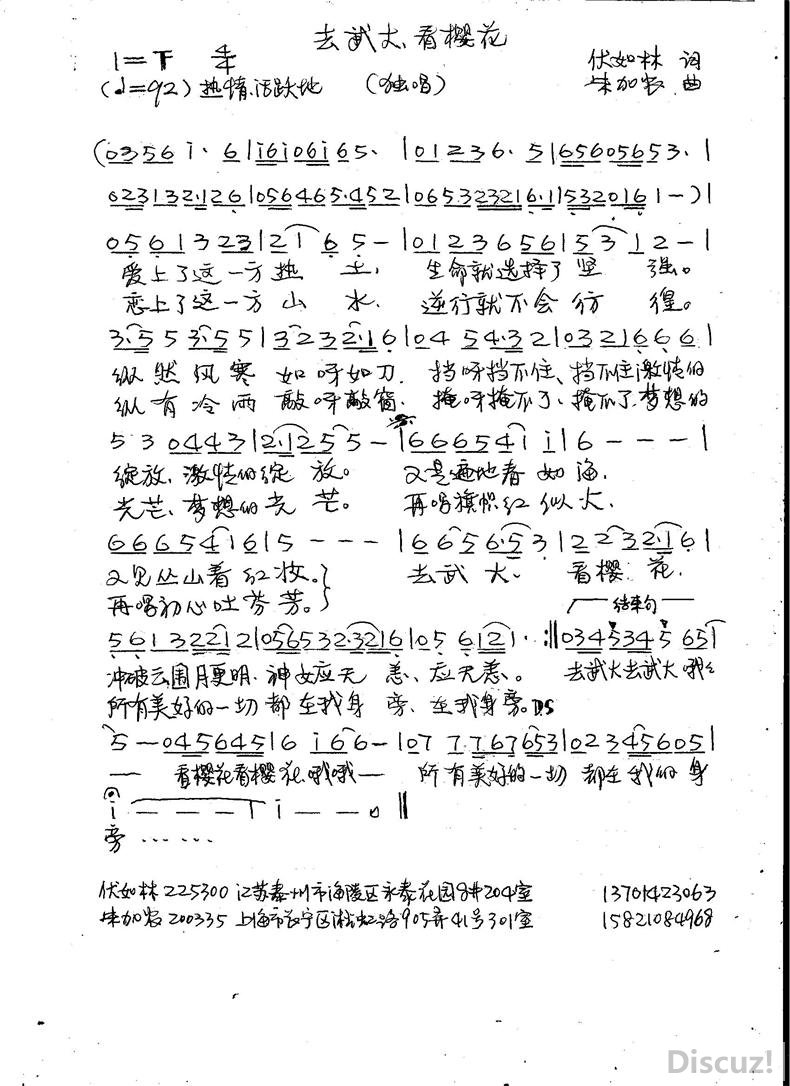 去武大、看樱花
1=F 4/4 伏如林 词
(♩=92) 热情、活跃地 (独唱) 朱加农 曲
(0356i· 6|i6i06i65· |01236· 5|65605653· |
023132·126|056465·452|065323216·1|1532016 1-)|
0561323|21 65-|01236561|5312-|
爱上了这一方热 土, 生命就选择了 坚 强。
恋上了这一方 山 水, 逆行就不会 彷 徨。
3·553·55|3232·16|0454·32|0321666|
纵然风寒 如呀如刀, 挡呀挡不住、挡不住激情的
纵有冷雨 敲呀敲窗, 掩呀掩不了、掩不了梦想的
530443|2·1255-|66654ii|6---|
绽放,激情的绽 放。 又是遍地春如海,
光芒,梦想的光 芒。 再唱旗帜红似火,
66654i6|5---|6656·53|22321·6|
又见丛山着红妆。} 去武大、 看樱 花,
再唱初心吐芬芳。}
结束句
561322212|056532·3216|056121··:‖0345345651|
冲破云围月更明,神女应无 恙、应无恙。 去武大去武大哦
所有美好的一切都在我身 旁、在我身旁。DS
5-0456451|6i66-|077767653|023456051|
— 看樱花看樱花,哦哦— 所有美好的一切 都在我的身
i---|i--0‖
旁……
伏如林 225300 江苏泰州市海陵区永泰花园8#204室 13701423063
朱加农 200335 上海市长宁区淞虹路905弄41号301室 15821084968
Discuz!